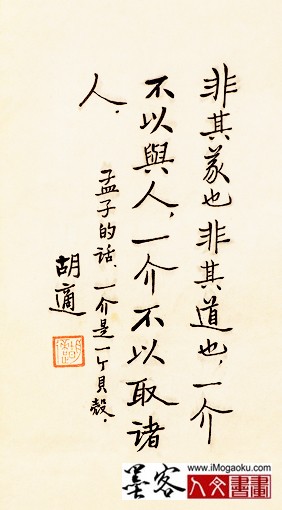 非其義也非其道也，一介
不以與人，一介不以取諸
人．
孟子的话、一介是一个貝殼．
胡適
墨客
www.iMogaoku.com
人文書畫